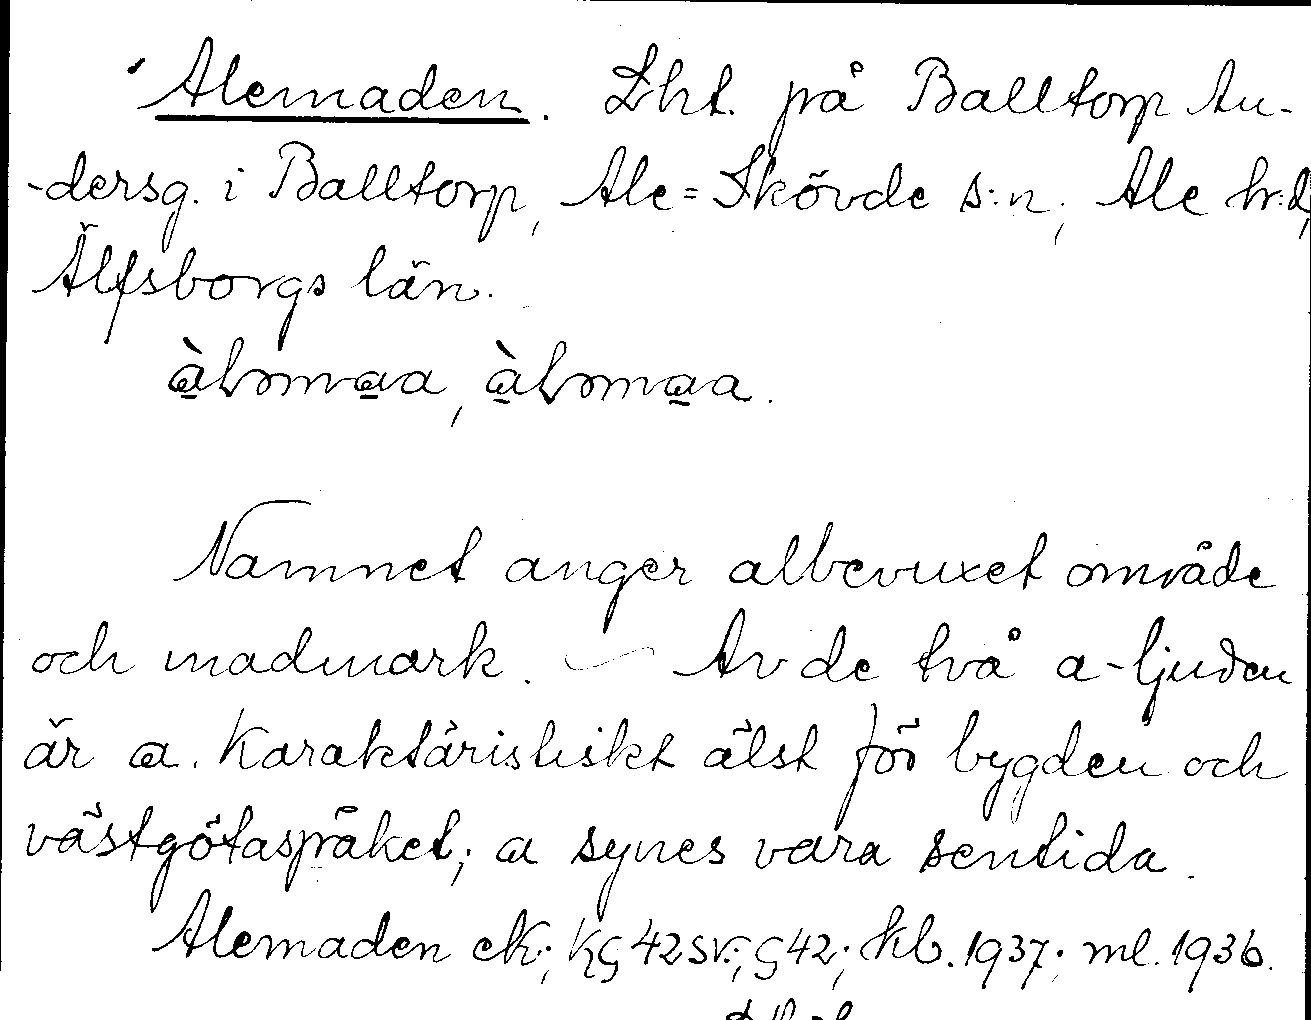 Alemaden. Lht. på Balltorp An-
-dersg. i Balltorp, Ale=Skövde s:n, Ale hr:d,
Älfsborgs län.
Namnet anger albevuxet område
och madmark. — Av de två a-ljuden
är a. karaktäristiskt älst för bygden och
västgötaspråket; a synes vara sentida.
Alemaden ek.; KG 42SV.; G42; kb. 1937; ml. 1936.